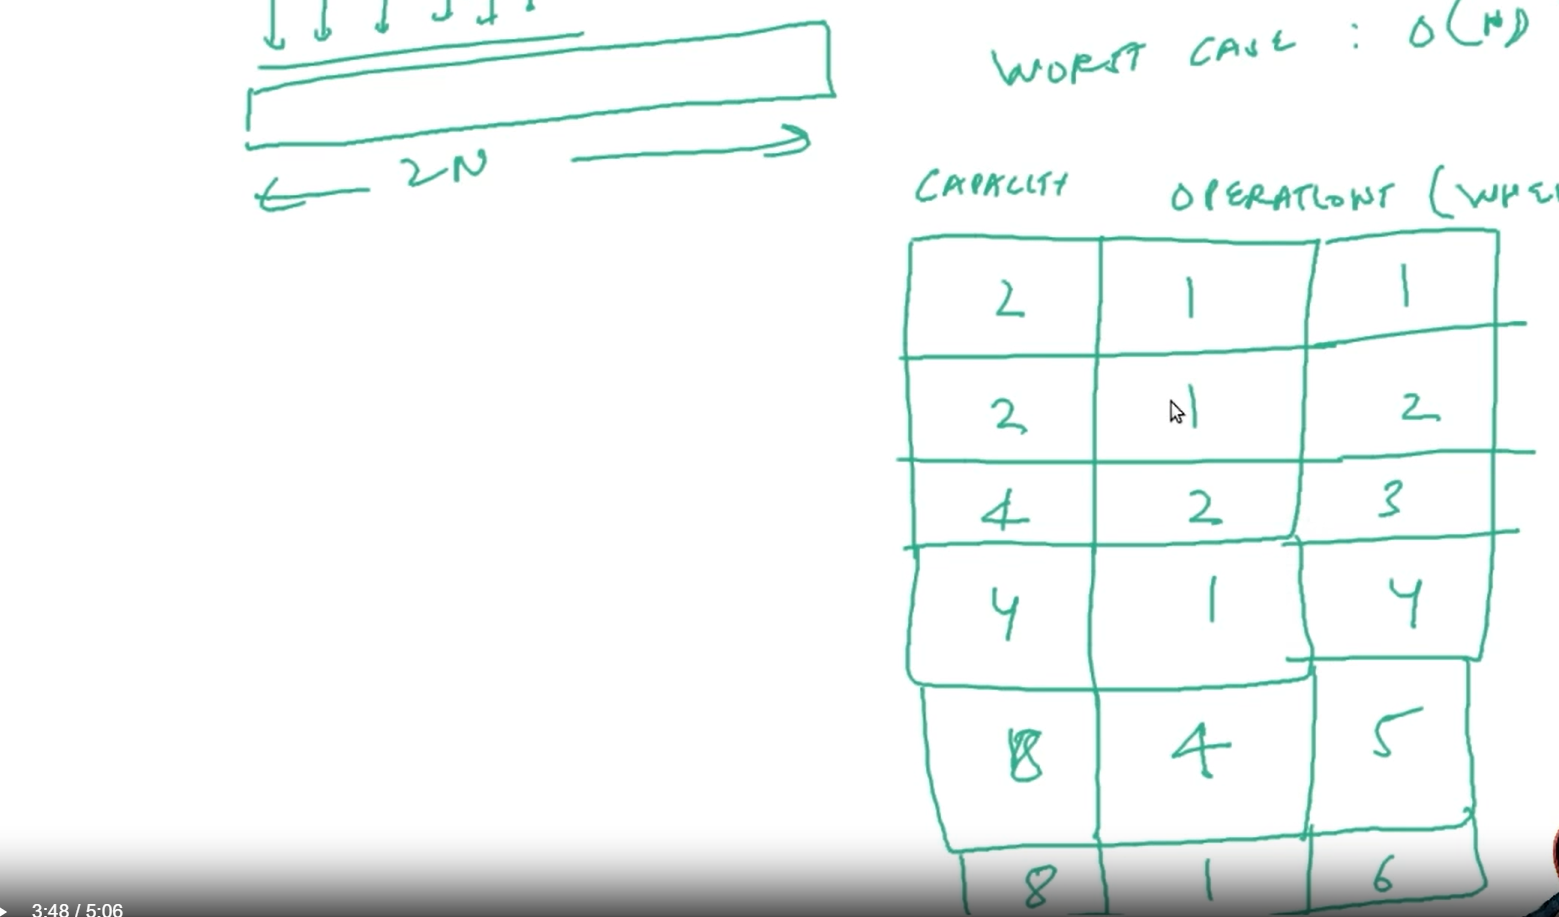 WORST CASE : O(N)
2N
CAPACITY OPERATIONS (WHE
2 1 1
2 1 2
4 2 3
4 1 4
8 4 5
8 1 6
3:48 / 5:06